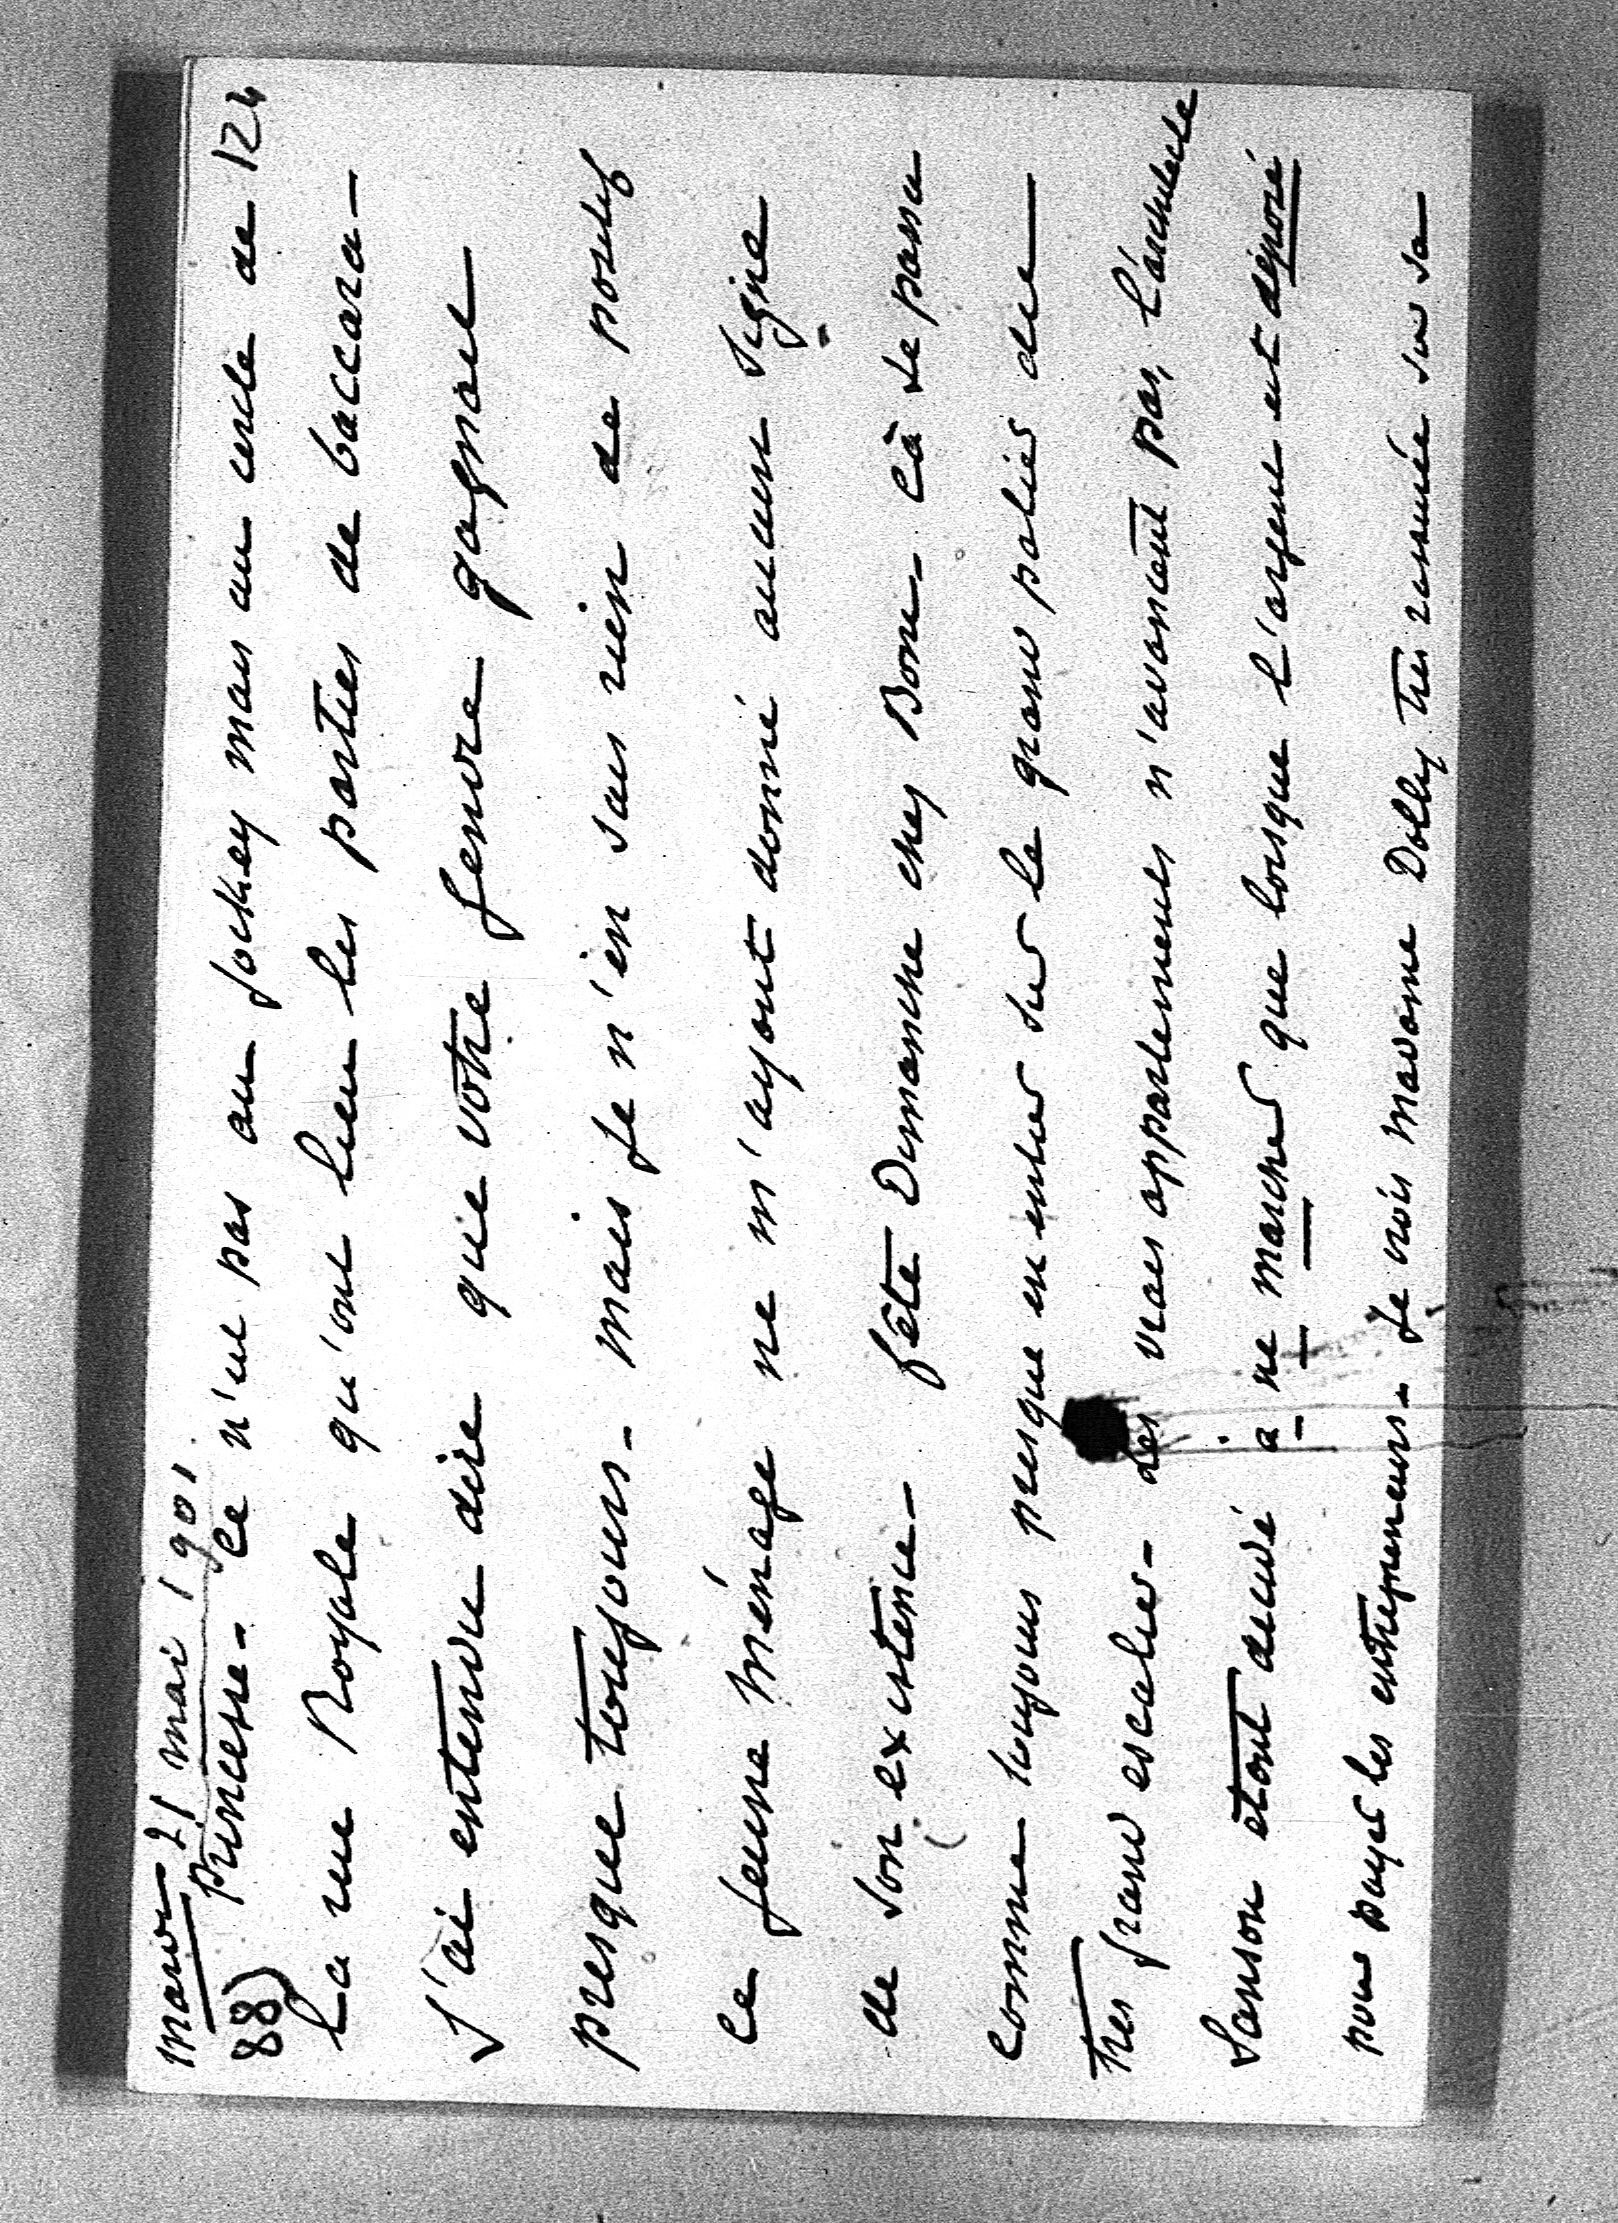 mardi 21 mai 1901
88) Princesse - Ce n'est pas au Jockey mais au cercle de 124
La rue Royale qu'ont lieu les parties de baccara -
J'ai entendu dire que votre gendre gagnait
presque toujours - mais je n'en sais rien de positif
ce jeune ménage ne m'ayant donné aucun signe
de son existence - fête Dimanche chez Boni - Cà se passa
comme toujours presque en entier sur le grand palier du
très grand escalier - Les vrais appartements n'avancent pas, l'architecte
Sanson étant décidé à ne marcher que lorsque l'argent est déposé
pour payer les entrepreneurs - Je vois madame Dolly très remuée sur sa